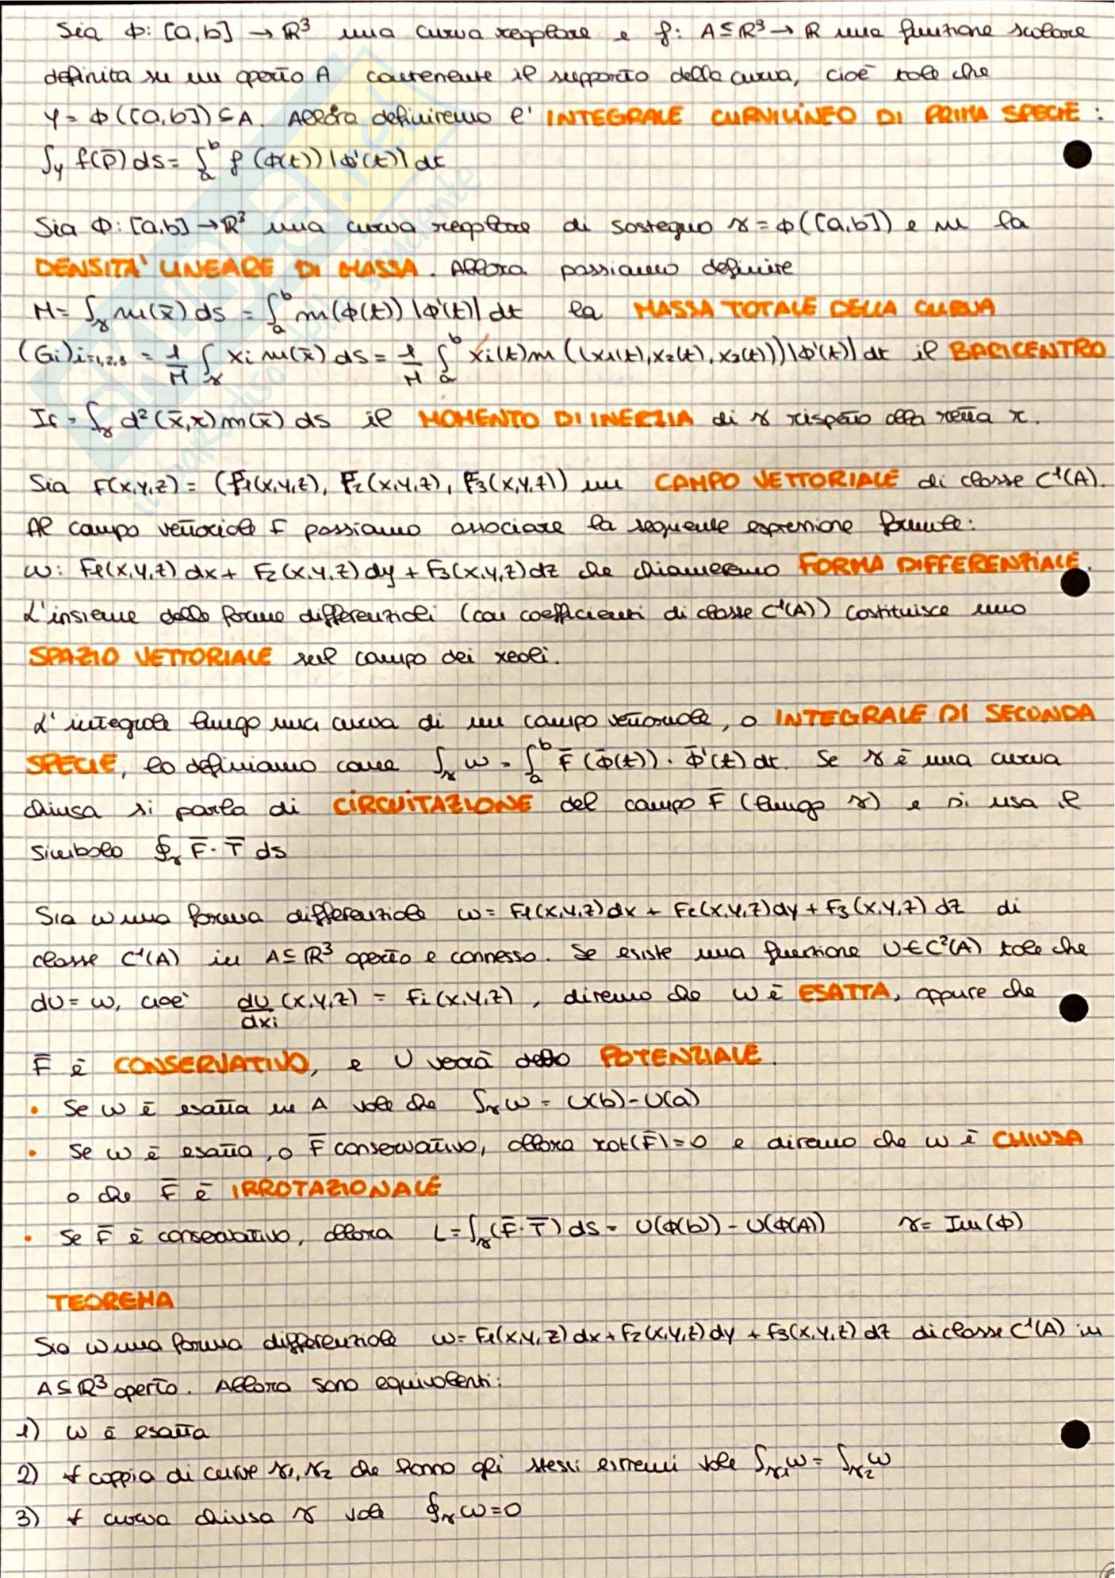 Sia Φ: [a,b] → ℝ³ una curva regolare e f: A⊆ℝ³→ ℝ una funzione scalare
definita su un aperto A contenente il supporto della curva, cioè tale che
γ = Φ([a,b]) ⊆ A. Allora definiremo l' INTEGRALE CURVILINEO DI PRIMA SPECIE :
∫γ f(p̄) ds = ∫ₐᵇ f (Φ(t)) |Φ'(t)| dt
Sia Φ: [a,b] → ℝ³ una curva regolare di sostegno γ = Φ([a,b]) e m la
DENSITA' LINEARE DI MASSA. Allora possiamo definire
M = ∫γ m(x̄) ds = ∫ₐᵇ m(Φ(t)) |Φ'(t)| dt la MASSA TOTALE DELLA CURVA
(Gi)i=1,2,3 = 1/M ∫γ xi m(x̄) ds = 1/M ∫ₐᵇ xi(t) m ((x1(t), x2(t), x3(t))) |Φ'(t)| dt il BARICENTRO
Ir = ∫γ d²(x̄,r) m(x̄) ds il MOMENTO DI INERZIA di γ rispetto alla retta r.
Sia F(x,y,z) = (F1(x,y,z), F2(x,y,z), F3(x,y,z)) un CAMPO VETTORIALE di classe C¹(A).
Al campo vettoriale F possiamo associare la seguente espressione formale:
ω: F1(x,y,z) dx + F2(x,y,z) dy + F3(x,y,z) dz che chiameremo FORMA DIFFERENZIALE.
L'insieme delle forme differenziali (con coefficienti di classe C¹(A)) costituisce uno
SPAZIO VETTORIALE sul campo dei reali.
L' integrale lungo una curva di un campo vettoriale, o INTEGRALE DI SECONDA
SPECIE, lo definiamo come ∫γ ω = ∫ₐᵇ F̄ (Φ̄(t)) · Φ̄'(t) dt. Se γ è una curva
chiusa si parla di CIRCUITAZIONE del campo F̄ (lungo γ) e si usa il
simbolo ∮γ F̄ · T̄ ds
Sia ω una forma differenziale ω = F1(x,y,z) dx + F2(x,y,z) dy + F3(x,y,z) dz di
classe C¹(A) in A⊆ℝ³ aperto e connesso. Se esiste una funzione U∈C²(A) tale che
dU = ω, cioè dU/dxi (x,y,z) = Fi(x,y,z), diremo che ω è ESATTA, oppure che
F̄ è CONSERVATIVO, e U verrà detto POTENZIALE.
• Se ω è esatta in A vale che ∫γ ω = U(b) - U(a)
• Se ω è esatta, o F̄ conservativo, allora rot(F̄)=0 e diremo che ω è CHIUSA
o che F̄ è IRROTAZIONALE
• Se F̄ è conservativo, allora L = ∫γ (F̄ · T̄) ds = U(Φ(b)) - U(Φ(A)) γ = Im(Φ)
TEOREMA
Sia ω una forma differenziale ω = F1(x,y,z) dx + F2(x,y,z) dy + F3(x,y,z) dz di classe C¹(A) in
A⊆ℝ³ aperto. Allora sono equivalenti:
1) ω è esatta
2) ∀ coppia di curve γ1, γ2 che hanno gli stessi estremi vale ∫γ1 ω = ∫γ2 ω
3) ∀ curva chiusa γ vale ∮γ ω = 0